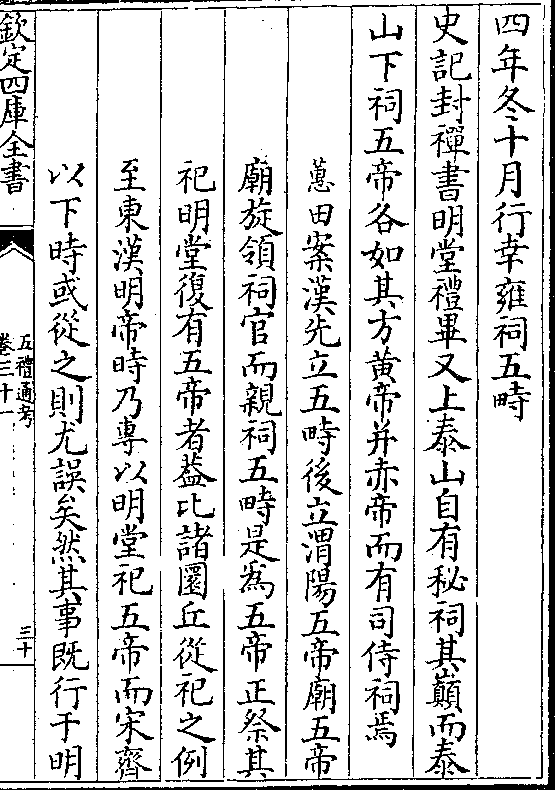 四年冬十月行幸雍祠五畤
史記封禪書明堂禮畢又上泰山自有秘祠其巔而泰
山下祠五帝各如其方黄帝并赤帝而有司侍祠焉
蕙田案漢先立五畤後立渭陽五帝廟五帝
廟旋領祠官而親祠五畤是爲五帝正祭其
祀明堂復有五帝者葢比諸圜丘從祀之例
至東漢明帝時乃專以明堂祀五帝而宋齊
以下時或從之則尤誤矣然其事既行于明
欽定四庫全書
五禮通考
卷三十一
三十